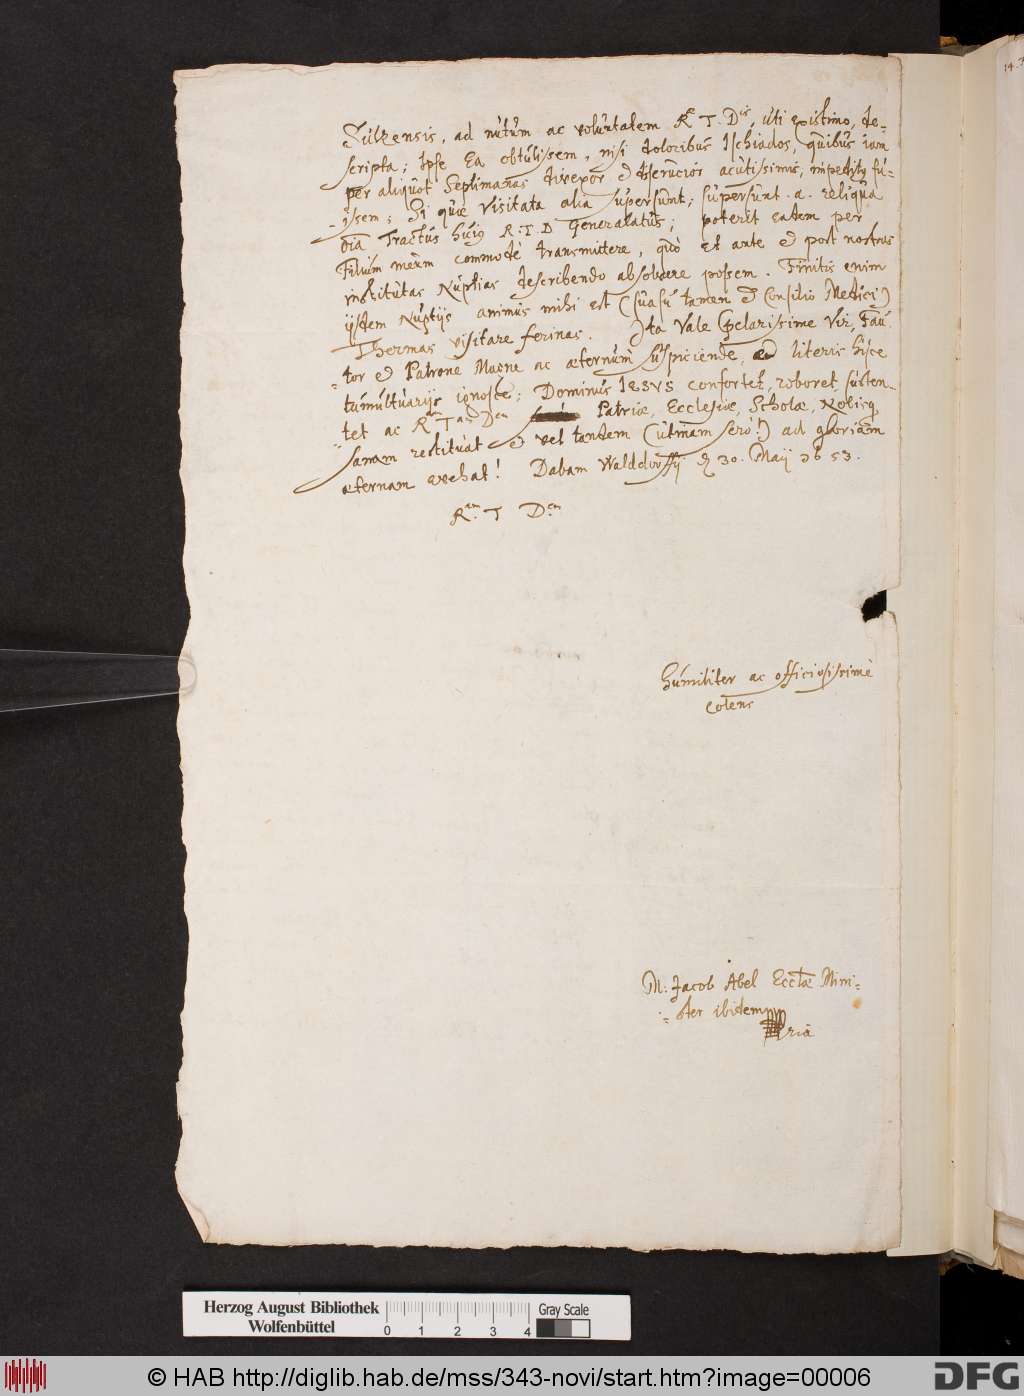 Sulzensis, ad nutum ac voluntatem Rae T. Dis, uti existimo, de-
scripta; Ipse Ea obtulissem, nisi doloribus Ischiados, quibus iam
per aliquot Septimanas divexor et discrucior acutissimis, impeditus fu-
issem; Si quae Visitata alia supersunt; supersunt. a. reliqua
oia Tractus huius R. T. D Generalatus; poterit eadem per
Filium meum commode transmittere, quò et ante et post nostras
institutas Nuptias describendo absolvere possem. Finitis enim
iisdem Nuptijs animus mihi est (suasu tamen et Consilio Medici)
Thermas visitare ferinas. Ita Vale Clarissime Vir, Fau-
tor et Patrone Magne ac aeternum suspiciende, et literis hisce
tumultuarijs ignosce; Dominus IESUS confortet, roboret, susten-
tet ac Ram Tam Dem Patriae, Ecclesiae, Scholae, Nobisq
sanam restituat et vel tandem (utinam serò!) ad gloriam
aeternam evehat! Dabam Walddorffij 30. Maij 1653.
Ram T Dem
humiliter ac officiosissimè
colens
M: Jacob Abel Eccliae Mini-
ster ibidem
ria
14.
Herzog August Bibliothek
Wolfenbüttel
0 1 2 3 4
Gray Scale
© HAB http://diglib.hab.de/mss/343-novi/start.htm?image=00006
DFG